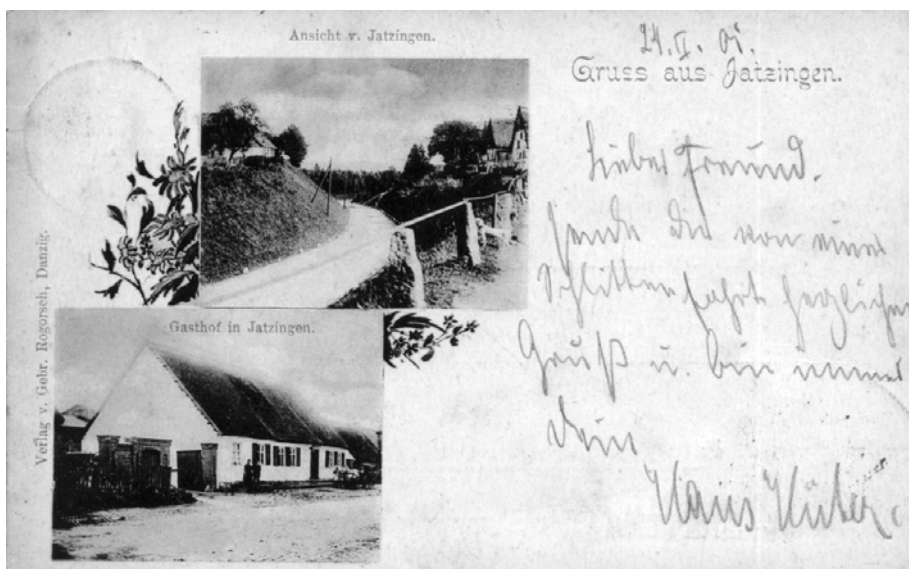 Ansicht v. Jatzingen.
24. II.
Gruss aus Jatzingen.
Lieber Freund.
Sende Dir von einer
Schlittenfahrt herzlichen
Gruß u. bin immer
Dein
Hans
Gasthof in Jatzingen.
Verlag v. Gebr. Rogorsch, Danzig.